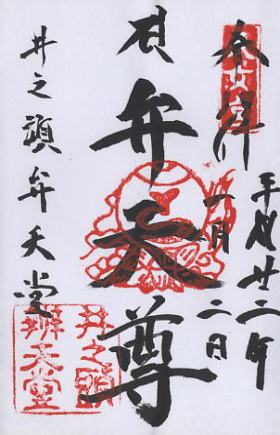 奉拝
平成廿二年
月二日
弁天尊
井之頭弁天堂
井之頭
辨天堂